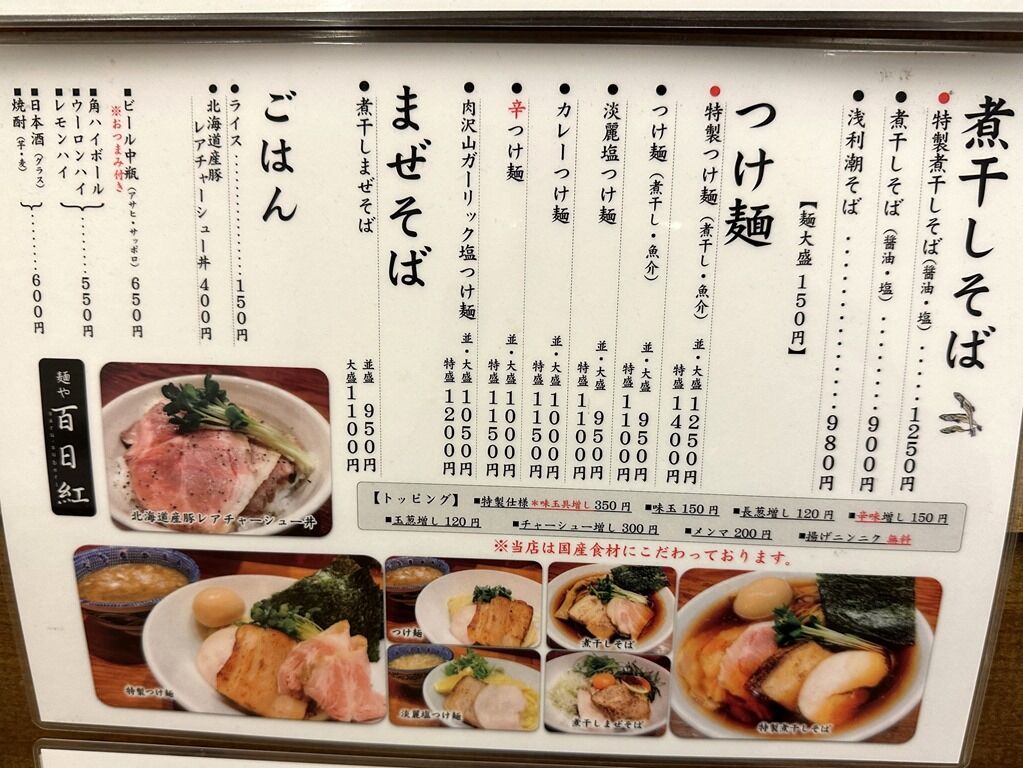 煮干しそば
●特製煮干しそば（醤油・塩）‥‥1250円
●煮干しそば（醤油・塩）‥‥‥‥900円
●浅利潮そば‥‥‥‥‥‥980円
【麺大盛150円】
つけ麺
●特製つけ麺（煮干し・魚介）並・大盛1250円
特盛1400円
●つけ麺（煮干し・魚介）並・大盛950円
特盛1100円
●淡麗塩つけ麺 並・大盛950円
特盛1100円
●カレーつけ麺 並・大盛1000円
特盛1150円
●辛つけ麺 並・大盛1000円
特盛1150円
●肉沢山ガーリック塩つけ麺 並・大盛1050円
特盛1200円
まぜそば
●煮干しまぜそば 並盛950円
大盛1100円
ごはん
●ライス‥‥‥‥‥150円
●北海道産豚
レアチャーシュー丼400円
■ビール中瓶（アサヒ・サッポロ）650円
※おつまみ付き
■角ハイボール
■ウーロンハイ
■レモンハイ
‥‥‥550円
■日本酒（グラス）
■焼酎（芋・麦）
‥‥‥600円
麺や 百日紅
北海道産豚レアチャーシュー丼
【トッピング】 ■特製仕様＊味玉具増し350円 ■味玉150円 ■長葱増し120円 ■辛味増し150円
■玉葱増し120円 ■チャーシュー増し300円 ■メンマ200円 ■揚げニンニク 無料
※当店は国産食材にこだわっております。
特製つけ麺
つけ麺
煮干しそば
淡麗塩つけ麺
煮干しまぜそば
特製煮干しそば